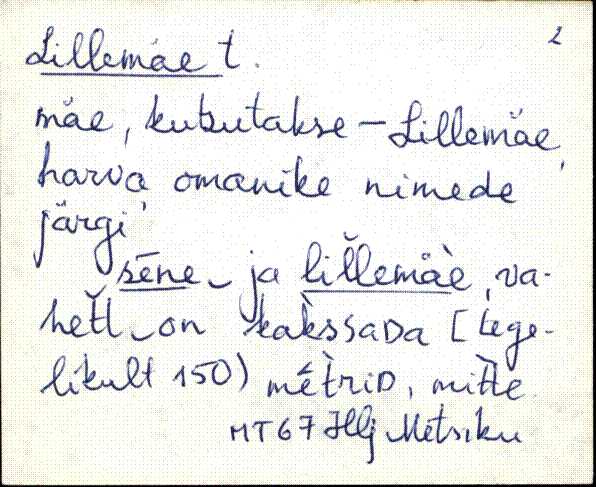 2
Lillemäe t.
mäe, kutsutakse – Lillemäe,
harva omanike nimede
järgi
sēne‿ ja lil̆lemäè, va-
hetl‿on kakssaDa [tege-
likult 150) mētriD, mitte
MT67 Hlj Metsiku